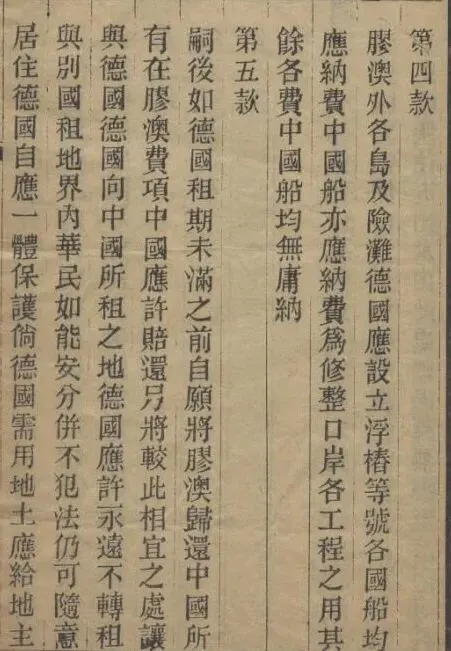 第四款
膠澳外各島及險灘德國應設立浮樁等號各國船均
應納費中國船亦應納費爲修整口岸各工程之用其
餘各費中國船均無庸納
第五款
嗣後如德國租期未滿之前自願將膠澳歸還中國所
有在膠澳費項中國應許賠還另將較此相宜之處讓
與德國德國向中國所租之地德國應許永遠不轉租
與別國租地界內華民如能安分併不犯法仍可隨意
居住德國自應一體保護倘德國需用地土應給地主